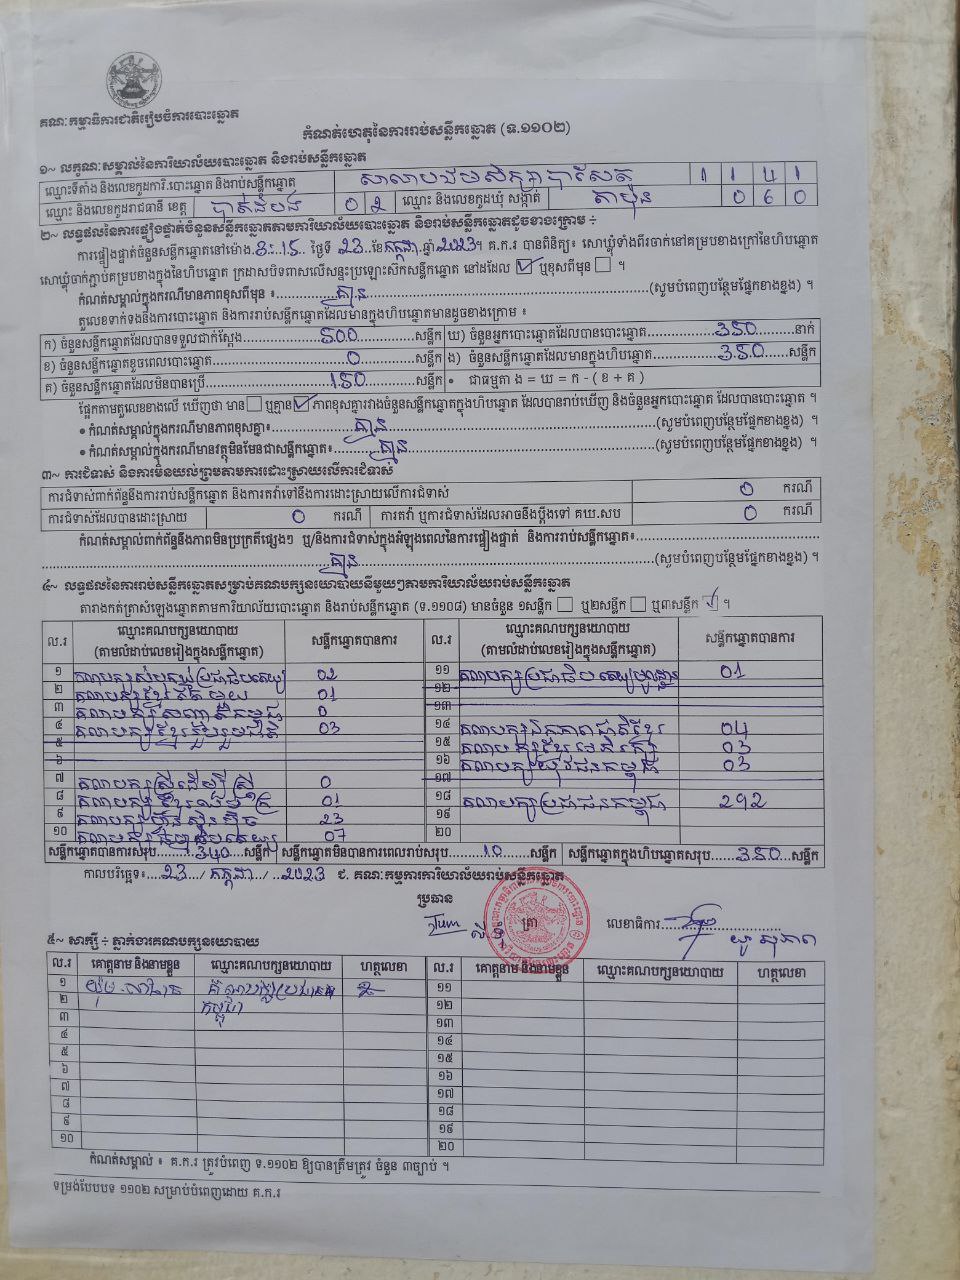 គណៈកម្មាធិការជាតិរៀបចំការបោះឆ្នោត
កំណត់ហេតុនៃការរាប់សន្លឹកឆ្នោត (ទ.១១០២)
១~ លក្ខណៈសម្គាល់នៃការិយាល័យបោះឆ្នោត និងរាប់សន្លឹកឆ្នោត
ឈ្មោះទីតាំង និងលេខកូដការិ.បោះឆ្នោត និងរាប់សន្លឹកឆ្នោត 1 1 4 1
ឈ្មោះ និងលេខកូដរាជធានី ខេត្ត បាត់ដំបង 0 2 ឈ្មោះ និងលេខកូដឃុំ សង្កាត់ តាប៉ុន 0 6 0
២~ លទ្ធផលនៃការផ្ទៀងផ្ទាត់ចំនួនសន្លឹកឆ្នោតតាមការិយាល័យបោះឆ្នោត និងរាប់សន្លឹកឆ្នោតដូចខាងក្រោម ÷
ការផ្ទៀងផ្ទាត់ចំនួនសន្លឹកឆ្នោតនៅម៉ោង 8:15 ថ្ងៃទី 23 ខែ កក្កដា ឆ្នាំ 2023។ គ.ក.រ បានពិនិត្យ៖ សោឃ្លុំទាំងពីរចាក់នៅគម្របខាងក្រៅនៃហិបឆ្នោត
សោឃ្លុំចាក់ភ្ជាប់គម្របខាងក្នុងនៃហិបឆ្នោត ក្រដាសបិទពាសលើសន្ទះប្រឡោះស៊កសន្លឹកឆ្នោត នៅដដែល ☑ ឬខុសពីមុន ☐ ។
កំណត់សម្គាល់ក្នុងករណីមានភាពខុសពីមុន ៖ គ្មាន (សូមបំពេញបន្ថែមផ្នែកខាងខ្នង) ។
តួលេខទាក់ទងនឹងការបោះឆ្នោត និងការរាប់សន្លឹកឆ្នោតដែលមានក្នុងហិបឆ្នោតមានដូចខាងក្រោម ៖
ក) ចំនួនសន្លឹកឆ្នោតដែលបានទទួលជាក់ស្តែង 500 សន្លឹក ឃ) ចំនួនអ្នកបោះឆ្នោតដែលបានបោះឆ្នោត 350 នាក់
ខ) ចំនួនសន្លឹកឆ្នោតខូចពេលបោះឆ្នោត 0 សន្លឹក ង) ចំនួនសន្លឹកឆ្នោតដែលមានក្នុងហិបឆ្នោត 350 សន្លឹក
គ) ចំនួនសន្លឹកឆ្នោតដែលមិនបានប្រើ 150 សន្លឹក • ជាធម្មតា ង = ឃ = ក - ( ខ + គ )
ផ្អែកតាមតួលេខខាងលើ ឃើញថា មាន ☐ ឬគ្មាន ☑ ភាពខុសគ្នារវាងចំនួនសន្លឹកឆ្នោតក្នុងហិបឆ្នោត ដែលបានរាប់ឃើញ និងចំនួនអ្នកបោះឆ្នោត ដែលបានបោះឆ្នោត ។
• កំណត់សម្គាល់ក្នុងករណីមានភាពខុសគ្នា៖ គ្មាន (សូមបំពេញបន្ថែមផ្នែកខាងខ្នង) ។
• កំណត់សម្គាល់ក្នុងករណីមានវត្ថុមិនមែនជាសន្លឹកឆ្នោត៖ គ្មាន (សូមបំពេញបន្ថែមផ្នែកខាងខ្នង) ។
៣~ ការជំទាស់ និងការមិនយល់ព្រមតាមការដោះស្រាយលើការជំទាស់
ការជំទាស់ពាក់ព័ន្ធនឹងការរាប់សន្លឹកឆ្នោត និងការតវ៉ាទៅនឹងការដោះស្រាយលើការជំទាស់ 0 ករណី
ការជំទាស់ដែលបានដោះស្រាយ 0 ករណី ការតវ៉ា ឬការជំទាស់ដែលអាចនឹងប្តឹងទៅ គឃ.សប 0 ករណី
កំណត់សម្គាល់ពាក់ព័ន្ធនឹងភាពមិនប្រក្រតីផ្សេងៗ ឬ/និងការជំទាស់ក្នុងអំឡុងពេលនៃការផ្ទៀងផ្ទាត់ និងការរាប់សន្លឹកឆ្នោត៖
គ្មាន (សូមបំពេញបន្ថែមផ្នែកខាងខ្នង) ។
៤~ លទ្ធផលនៃការរាប់សន្លឹកឆ្នោតសម្រាប់គណបក្សនយោបាយនីមួយៗតាមការិយាល័យរាប់សន្លឹកឆ្នោត
តារាងកត់ត្រាសំឡេងឆ្នោតតាមការិយាល័យបោះឆ្នោត និងរាប់សន្លឹកឆ្នោត (ទ.១១០៨) មានចំនួន ១សន្លឹក ☐ ឬ២សន្លឹក ☐ ឬ៣សន្លឹក ☑ ។
ល.រ ឈ្មោះគណបក្សនយោបាយ (តាមលំដាប់លេខរៀងក្នុងសន្លឹកឆ្នោត) សន្លឹកឆ្នោតបានការ ល.រ ឈ្មោះគណបក្សនយោបាយ (តាមលំដាប់លេខរៀងក្នុងសន្លឹកឆ្នោត) សន្លឹកឆ្នោតបានការ
១ 02 ១១ 01
២ គណបក្សខ្មែរតែមួយ 01 ១២
៣ 0 ១៣
៤ គណបក្សខ្មែររួបរួមជាតិ 03 ១៤ គណបក្សឯកភាពជាតិខ្មែរ 04
៥ ១៥ គណបក្សខ្មែរអភិរក្ស 03
៦ ១៦ គណបក្សយុវជនកម្ពុជា 03
៧ គណបក្សស្ត្រីដើម្បីស្ត្រី 0 ១៧
៨ 01 ១៨ គណបក្សប្រជាជនកម្ពុជា 292
៩ គណបក្សហ៊្វុនស៊ិនប៉ិច 23 ១៩
១០ 07 ២០
សន្លឹកឆ្នោតបានការសរុប 340 សន្លឹក សន្លឹកឆ្នោតមិនបានការពេលរាប់សរុប 10 សន្លឹក សន្លឹកឆ្នោតក្នុងហិបឆ្នោតសរុប 350 សន្លឹក
កាលបរិច្ឆេទ៖ 23 / កក្កដា / 2023 ជ. គណៈកម្មការការិយាល័យរាប់សន្លឹកឆ្នោត
ប្រធាន
ត្រា
លេខាធិការ
៥~ សាក្សី ÷ ភ្នាក់ងារគណបក្សនយោបាយ
ល.រ គោត្តនាម និងនាមខ្លួន ឈ្មោះគណបក្សនយោបាយ ហត្ថលេខា ល.រ គោត្តនាម និងនាមខ្លួន ឈ្មោះគណបក្សនយោបាយ ហត្ថលេខា
១ គណបក្សប្រជាជន ១១
២ កម្ពុជា ១២
៣ ១៣
៤ ១៤
៥ ១៥
៦ ១៦
៧ ១៧
៨ ១៨
៩ ១៩
១០ ២០
កំណត់សម្គាល់ ៖ គ.ក.រ ត្រូវបំពេញ ទ.១១០២ ឱ្យបានត្រឹមត្រូវ ចំនួន ៣ច្បាប់ ។
ទម្រង់បែបបទ ១១០២ សម្រាប់បំពេញដោយ គ.ក.រ